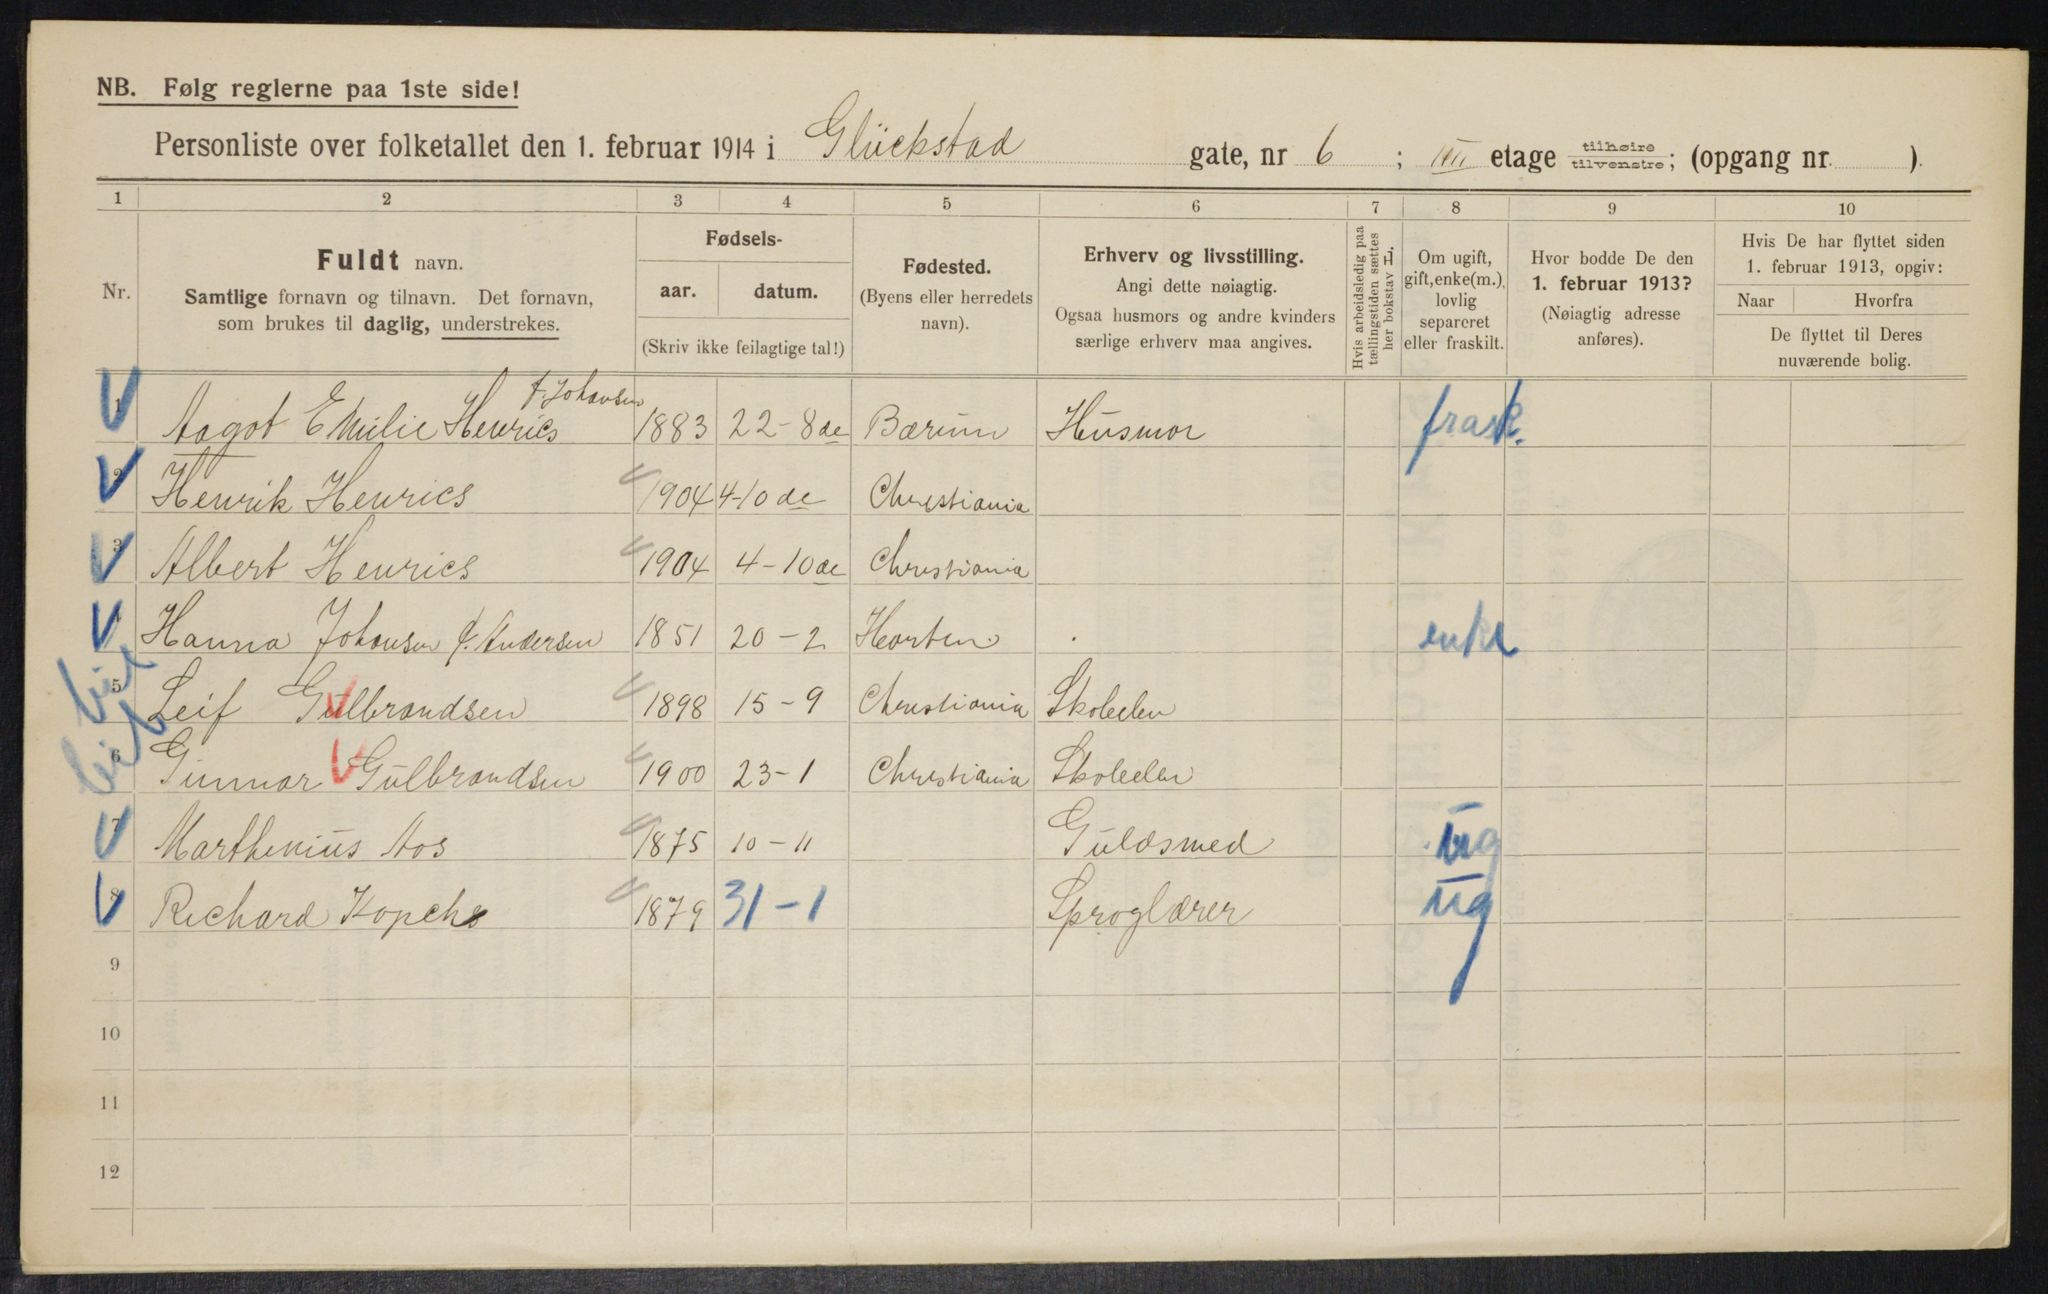 NB. Følg reglerne paa 1ste side!
Personliste over folketallet den 1. februar 1914 i Glückstad gate, nr 6 ; III etage tilhøire tilvenstre; (opgang nr. ).
1 2 3 4 5 6 7 8 9 10
Nr.
Fuldt navn.
Samtlige fornavn og tilnavn. Det fornavn,
som brukes til daglig, understrekes.
Fødsels-
aar. datum.
(Skriv ikke feilagtige tal!)
Fødested.
(Byens eller herredets
navn).
Erhverv og livsstilling.
Angi dette nøiagtig.
Ogsaa husmors og andre kvinders
særlige erhverv maa angives.
Hvis arbeidsledig paa
tællingstiden sættes
her bokstav L.
Om ugift,
gift, enke(m.),
lovlig
separeret
eller fraskilt.
Hvor bodde De den
1. februar 1913?
(Nøiagtig adresse
anføres).
Hvis De har flyttet siden
1. februar 1913, opgiv:
Naar Hvorfra
De flyttet til Deres
nuværende bolig.
f. Johansen
1 Aagot Emilie Henrics 1883 22-8de Bærum Husmor frask.
2 Henrik Henrics 1904 4-10de Christiania
3 Albert Henrics 1904 4-10de Christiania
4 Hanna Johansen f. Andersen 1851 20-2 Horten enke
5 Leif Gulbrandsen 1898 15-9 Christiania Skoleelev
6 Gunnar Gulbrandsen 1900 23-1 Christiania Skoleelev
7 Marthenius Aos 1875 10-11 Guldsmed ug
8 Richard Kopchs 1879 31-1 Sproglærer ug
9
10
11
12